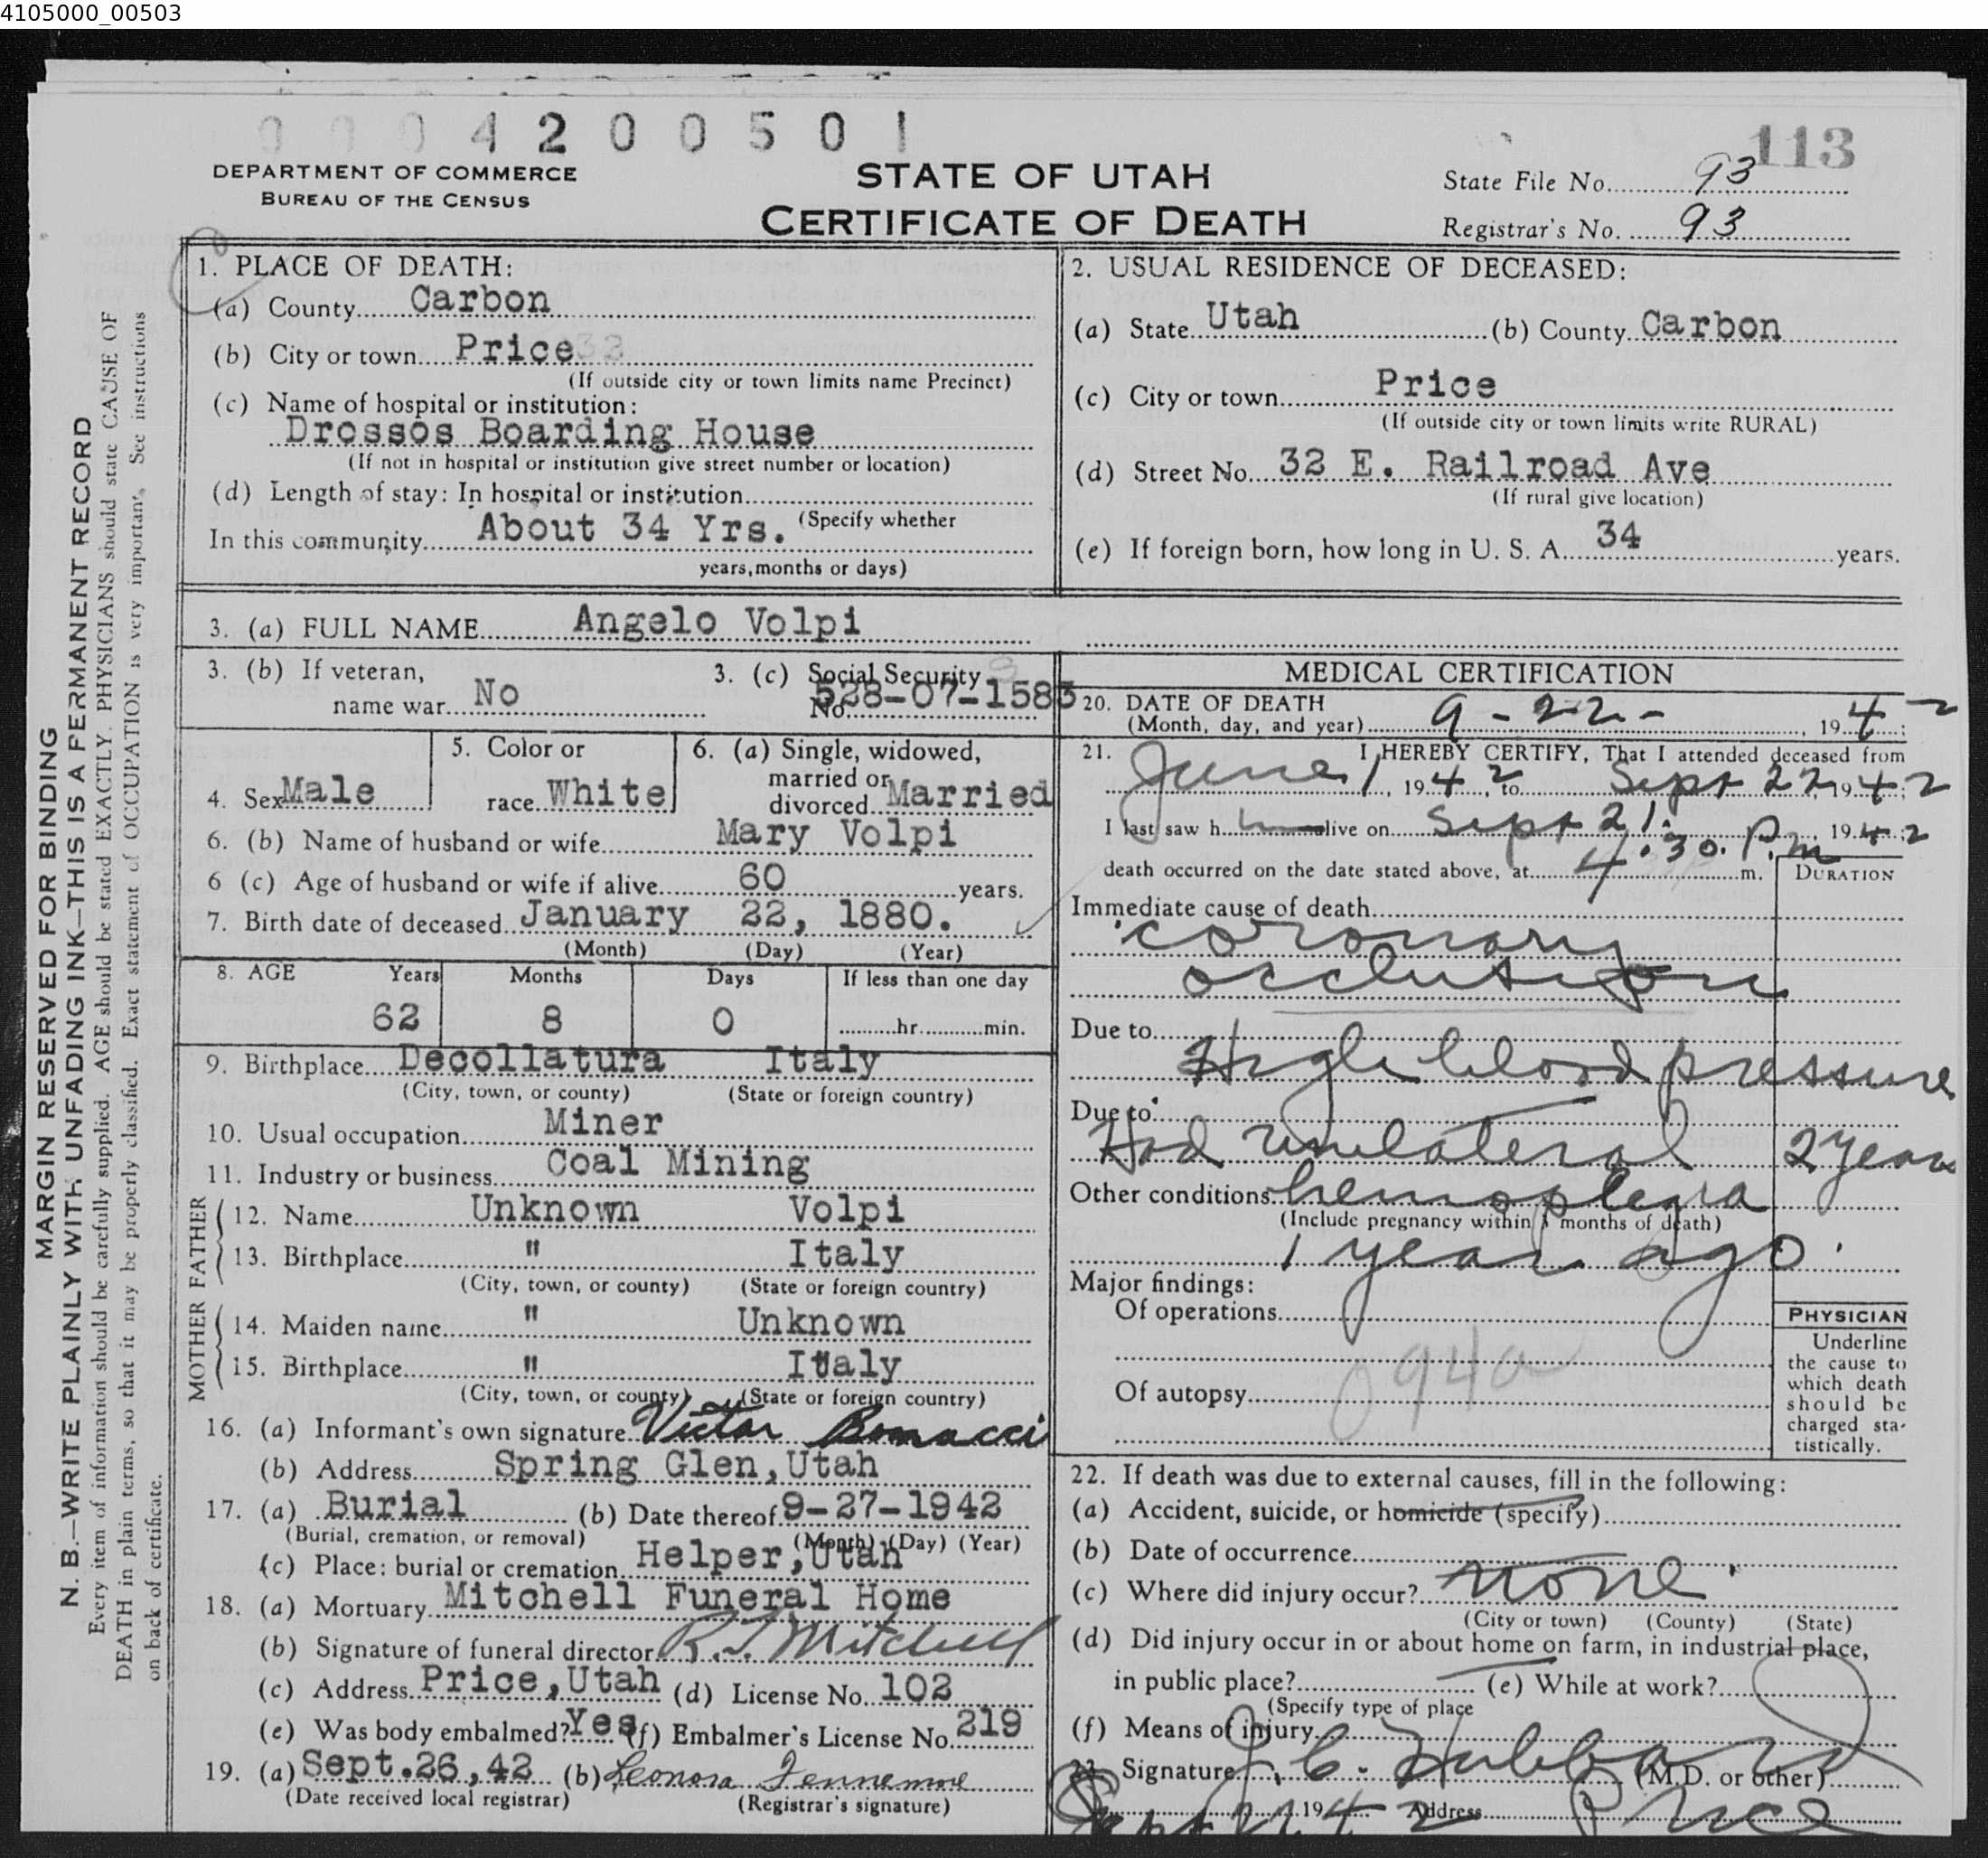 4105000_00503
0004200501
113
DEPARTMENT OF COMMERCE
BUREAU OF THE CENSUS
STATE OF UTAH
CERTIFICATE OF DEATH
State File No. 93
Registrar's No. 93
MARGIN RESERVED FOR BINDING
N. B.—WRITE PLAINLY WITH UNFADING INK—THIS IS A PERMANENT RECORD
Every item of information should be carefully supplied. AGE should be stated EXACTLY. PHYSICIANS should state CAUSE OF
DEATH in plain terms, so that it may be properly classified. Exact statement of OCCUPATION is very important. See instructions
on back of certificate.
1. PLACE OF DEATH:
(a) County Carbon
(b) City or town Price
(If outside city or town limits name Precinct)
(c) Name of hospital or institution:
Drossos Boarding House
(If not in hospital or institution give street number or location)
(d) Length of stay: In hospital or institution
(Specify whether
In this community About 34 Yrs.
years, months or days)
2. USUAL RESIDENCE OF DECEASED:
(a) State Utah (b) County Carbon
(c) City or town Price
(If outside city or town limits write RURAL)
(d) Street No. 32 E. Railroad Ave
(If rural give location)
(e) If foreign born, how long in U. S. A. 34 years.
3. (a) FULL NAME Angelo Volpi
3. (b) If veteran, name war No
3. (c) Social Security No. 528-07-1583
4. Sex Male
5. Color or race White
6. (a) Single, widowed, married or divorced Married
6. (b) Name of husband or wife Mary Volpi
6 (c) Age of husband or wife if alive 60 years.
7. Birth date of deceased January 22, 1880.
(Month) (Day) (Year)
8. AGE Years Months Days If less than one day
62 8 0 hr. min.
9. Birthplace Decollatura Italy
(City, town, or county) (State or foreign country)
10. Usual occupation Miner
11. Industry or business Coal Mining
FATHER
12. Name Unknown Volpi
13. Birthplace " Italy
(City, town, or county) (State or foreign country)
MOTHER
14. Maiden name " Unknown
15. Birthplace " Italy
(City, town, or county) (State or foreign country)
16. (a) Informant's own signature Victor Bonacci
(b) Address Spring Glen, Utah
17. (a) Burial (b) Date thereof 9-27-1942
(Burial, cremation, or removal) (Month) (Day) (Year)
(c) Place: burial or cremation Helper, Utah
18. (a) Mortuary Mitchell Funeral Home
(b) Signature of funeral director R. J. Mitchell
(c) Address Price, Utah (d) License No. 102
(e) Was body embalmed? Yes (f) Embalmer's License No. 219
19. (a) Sept. 26, 42 (b) Leonora Fennemore
(Date received local registrar) (Registrar's signature)
MEDICAL CERTIFICATION
20. DATE OF DEATH
(Month, day, and year) 9-22- 1942
21. I HEREBY CERTIFY, That I attended deceased from
June 1, 1942, to Sept 22, 1942
I last saw h alive on Sept 21, 1942
death occurred on the date stated above, at 4:30 P.m m.
DURATION
Immediate cause of death
coronary
occlusion
Due to
High blood pressure
Due to
Had unilateral 2 years
Other conditions hemoplegia
(Include pregnancy within 3 months of death)
1 year ago.
Major findings:
Of operations
094a
Of autopsy
PHYSICIAN
Underline
the cause to
which death
should be
charged sta-
tistically.
22. If death was due to external causes, fill in the following:
(a) Accident, suicide, or homicide (specify)
(b) Date of occurrence
(c) Where did injury occur? none
(City or town) (County) (State)
(d) Did injury occur in or about home on farm, in industrial place,
in public place? (e) While at work?
(Specify type of place
(f) Means of injury
23. Signature J. C. Hubbard (M.D. or other)
Sept 1942 Address Price